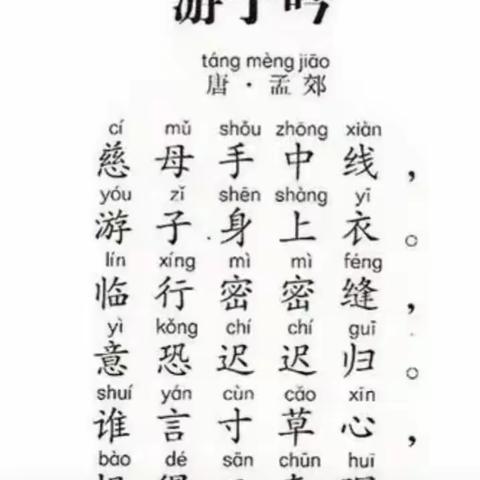 游子吟
táng mèng jiāo
唐·孟郊
cí mǔ shǒu zhōng xiàn
慈母手中线，
yóu zǐ shēn shàng yī
游子身上衣。
lín xíng mì mì féng
临行密密缝，
yì kǒng chí chí guī
意恐迟迟归。
shuí yán cùn cǎo xīn
谁言寸草心，
bào dé sān chūn huī